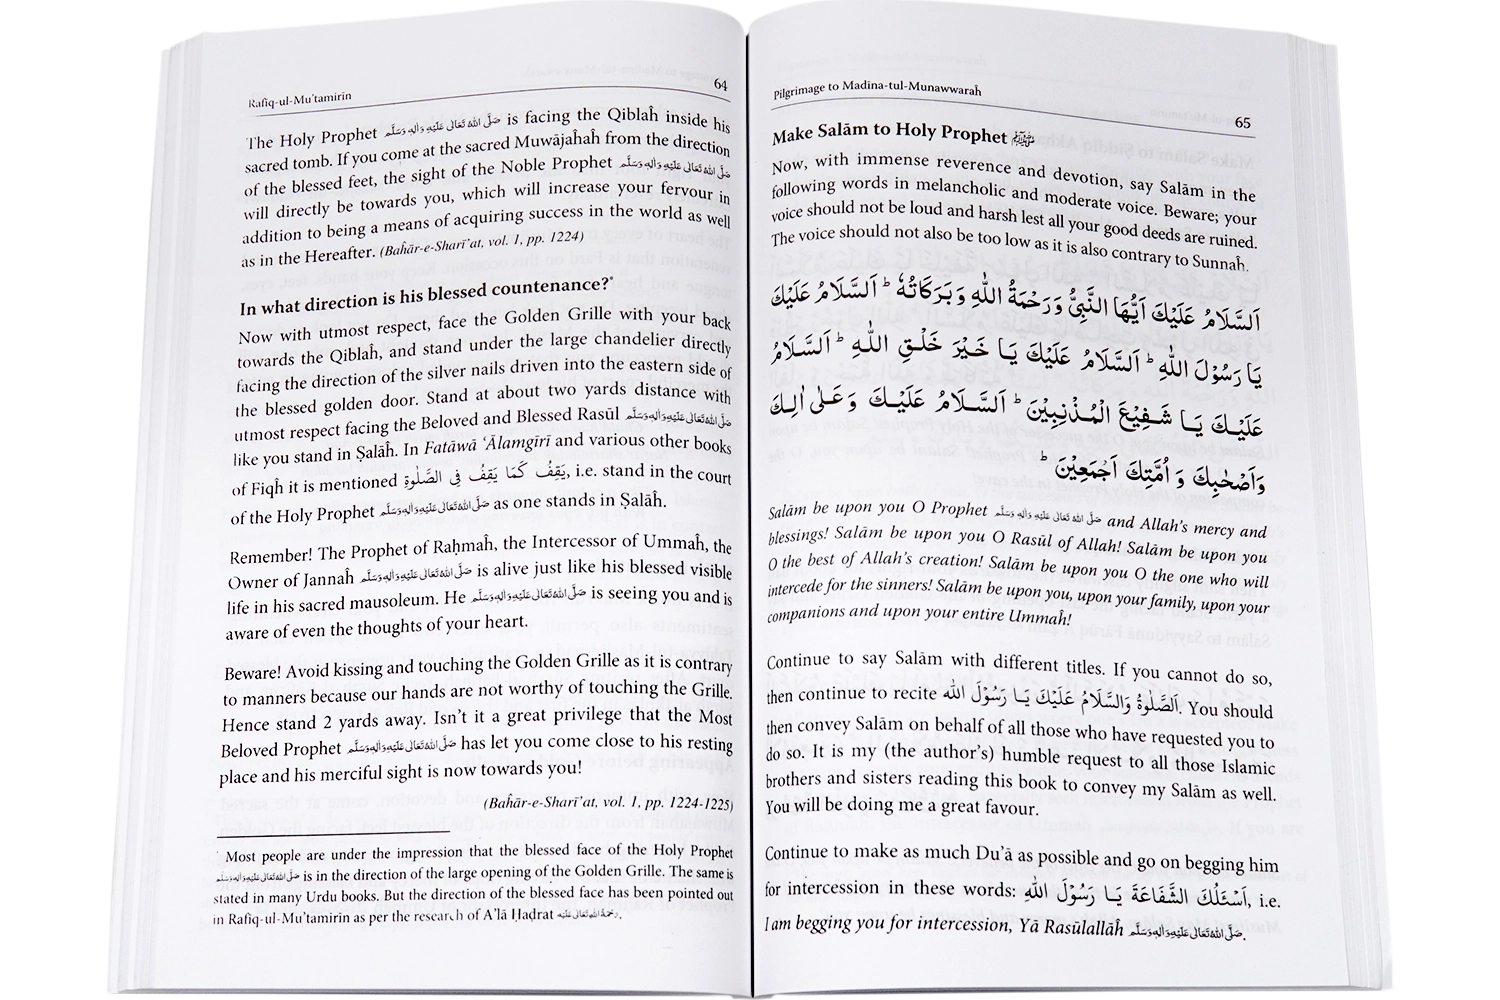 Rafīq-ul-Mu'tamirin
64
The Holy Prophet صَلَّى اللهُ تَعَالٰى عَلَيْهِ وَاٰلِهٖ وَسَلَّم is facing the Qiblaĥ inside his
sacred tomb. If you come at the sacred Muwājaĥaĥ from the direction
of the blessed feet, the sight of the Noble Prophet صَلَّى اللهُ تَعَالٰى عَلَيْهِ وَاٰلِهٖ وَسَلَّم
will directly be towards you, which will increase your fervour in
addition to being a means of acquiring success in the world as well
as in the Hereafter. (Baĥār-e-Sharī'at, vol. 1, pp. 1224)
In what direction is his blessed countenance?*
Now with utmost respect, face the Golden Grille with your back
towards the Qiblaĥ, and stand under the large chandelier directly
facing the direction of the silver nails driven into the eastern side of
the blessed golden door. Stand at about two yards distance with
utmost respect facing the Beloved and Blessed Rasūl صَلَّى اللهُ تَعَالٰى عَلَيْهِ وَاٰلِهٖ وَسَلَّم
like you stand in Ṣalāĥ. In Fatāwā ‘Ālamgīrī and various other books
of Fiqĥ it is mentioned يَقِفُ كَمَا يَقِفُ فِى الصَّلٰوةِ, i.e. stand in the court
of the Holy Prophet صَلَّى اللهُ تَعَالٰى عَلَيْهِ وَاٰلِهٖ وَسَلَّم as one stands in Ṣalāĥ.
Remember! The Prophet of Raḥmaĥ, the Intercessor of Ummaĥ, the
Owner of Jannaĥ صَلَّى اللهُ تَعَالٰى عَلَيْهِ وَاٰلِهٖ وَسَلَّم is alive just like his blessed visible
life in his sacred mausoleum. He صَلَّى اللهُ تَعَالٰى عَلَيْهِ وَاٰلِهٖ وَسَلَّم is seeing you and is
aware of even the thoughts of your heart.
Beware! Avoid kissing and touching the Golden Grille as it is contrary
to manners because our hands are not worthy of touching the Grille.
Hence stand 2 yards away. Isn't it a great privilege that the Most
Beloved Prophet صَلَّى اللهُ تَعَالٰى عَلَيْهِ وَاٰلِهٖ وَسَلَّم has let you come close to his resting
place and his merciful sight is now towards you!
(Baĥār-e-Sharī'at, vol. 1, pp. 1224-1225)
* Most people are under the impression that the blessed face of the Holy Prophet
صَلَّى اللهُ تَعَالٰى عَلَيْهِ وَاٰلِهٖ وَسَلَّم is in the direction of the large opening of the Golden Grille. The same is
stated in many Urdu books. But the direction of the blessed face has been pointed out
in Rafiq-ul-Mu'tamirin as per the research of A'lā Ḥaḍrat رَحْمَةُ اللهِ تَعَالٰى عَلَيْه.
Pilgrimage to Madīna-tul-Munawwaraĥ
65
Make Salām to Holy Prophet ﷺ
Now, with immense reverence and devotion, say Salām in the
following words in melancholic and moderate voice. Beware; your
voice should not be loud and harsh lest all your good deeds are ruined.
The voice should not also be too low as it is also contrary to Sunnaĥ.
اَلسَّلَامُ عَلَيْكَ اَيُّهَا النَّبِيُّ وَرَحْمَةُ اللّٰهِ وَبَرَكَاتُهٗ ؕ اَلسَّلَامُ عَلَيْكَ
يَا رَسُوْلَ اللّٰهِ ؕ اَلسَّلَامُ عَلَيْكَ يَا خَيْرَ خَلْقِ اللّٰهِ ؕ اَلسَّلَامُ
عَلَيْكَ يَا شَفِيْعَ الْمُذْنِبِيْنَ ؕ اَلسَّلَامُ عَلَيْكَ وَعَلٰى اٰلِكَ
وَاَصْحٰبِكَ وَاُمَّتِكَ اَجْمَعِيْنَ ؕ
Salām be upon you O Prophet صَلَّى اللهُ تَعَالٰى عَلَيْهِ وَاٰلِهٖ وَسَلَّم and Allah's mercy and
blessings! Salām be upon you O Rasūl of Allah! Salām be upon you
O the best of Allah's creation! Salām be upon you O the one who will
intercede for the sinners! Salām be upon you, upon your family, upon your
companions and upon your entire Ummaĥ!
Continue to say Salām with different titles. If you cannot do so,
then continue to recite اَلصَّلٰوةُ وَالسَّلَامُ عَلَيْكَ يَا رَسُوْلَ اللّٰه. You should
then convey Salām on behalf of all those who have requested you to
do so. It is my (the author's) humble request to all those Islamic
brothers and sisters reading this book to convey my Salām as well.
You will be doing me a great favour.
Continue to make as much Du'ā as possible and go on begging him
for intercession in these words: اَسْئَلُكَ الشَّفَاعَةَ يَا رَسُوْلَ اللّٰه, i.e.
I am begging you for intercession, Yā Rasūlallāh صَلَّى اللهُ تَعَالٰى عَلَيْهِ وَاٰلِهٖ وَسَلَّم.